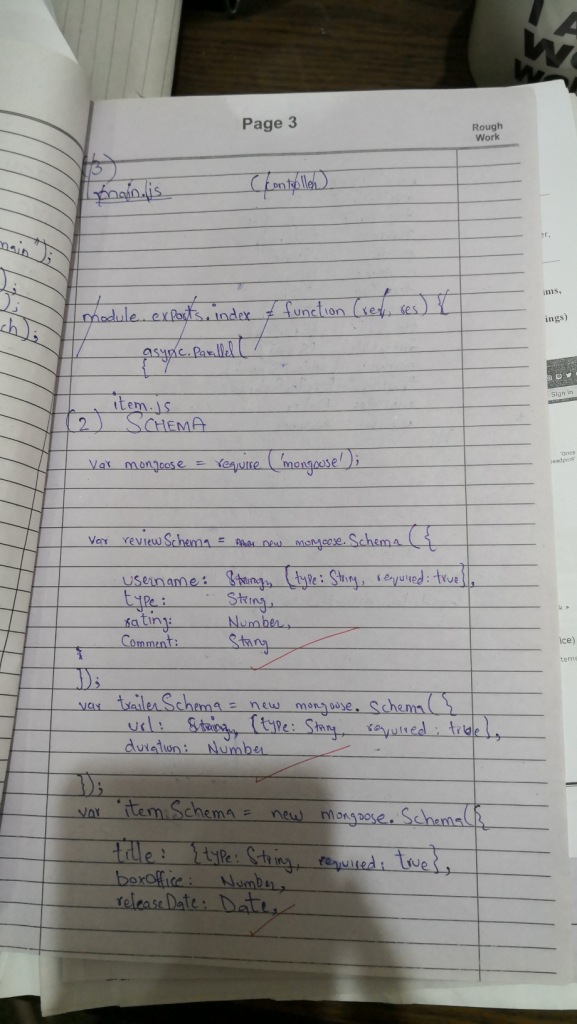 I A
WO
WO
Page 3
Rough
Work
(3)
main.js (Controller)
main");
);
);
ch);
module.exports.index = function (req, res) {
async.Parallel(
{
item.js
(2) SCHEMA
var mongoose = require ('mongoose');
var reviewSchema = new mongoose.Schema ({
username: String, {type: String, required: true},
type: String,
rating: Number,
Comment: String
});
var trailerSchema = new mongoose. Schema ({
url: String, {type: String, required: true},
duration: Number
});
var itemSchema = new mongoose. Schema({
title: {type: String, required: true},
boxOffice: Number,
releaseDate: Date,
er,
ims,
ings)
Sign in
ice)